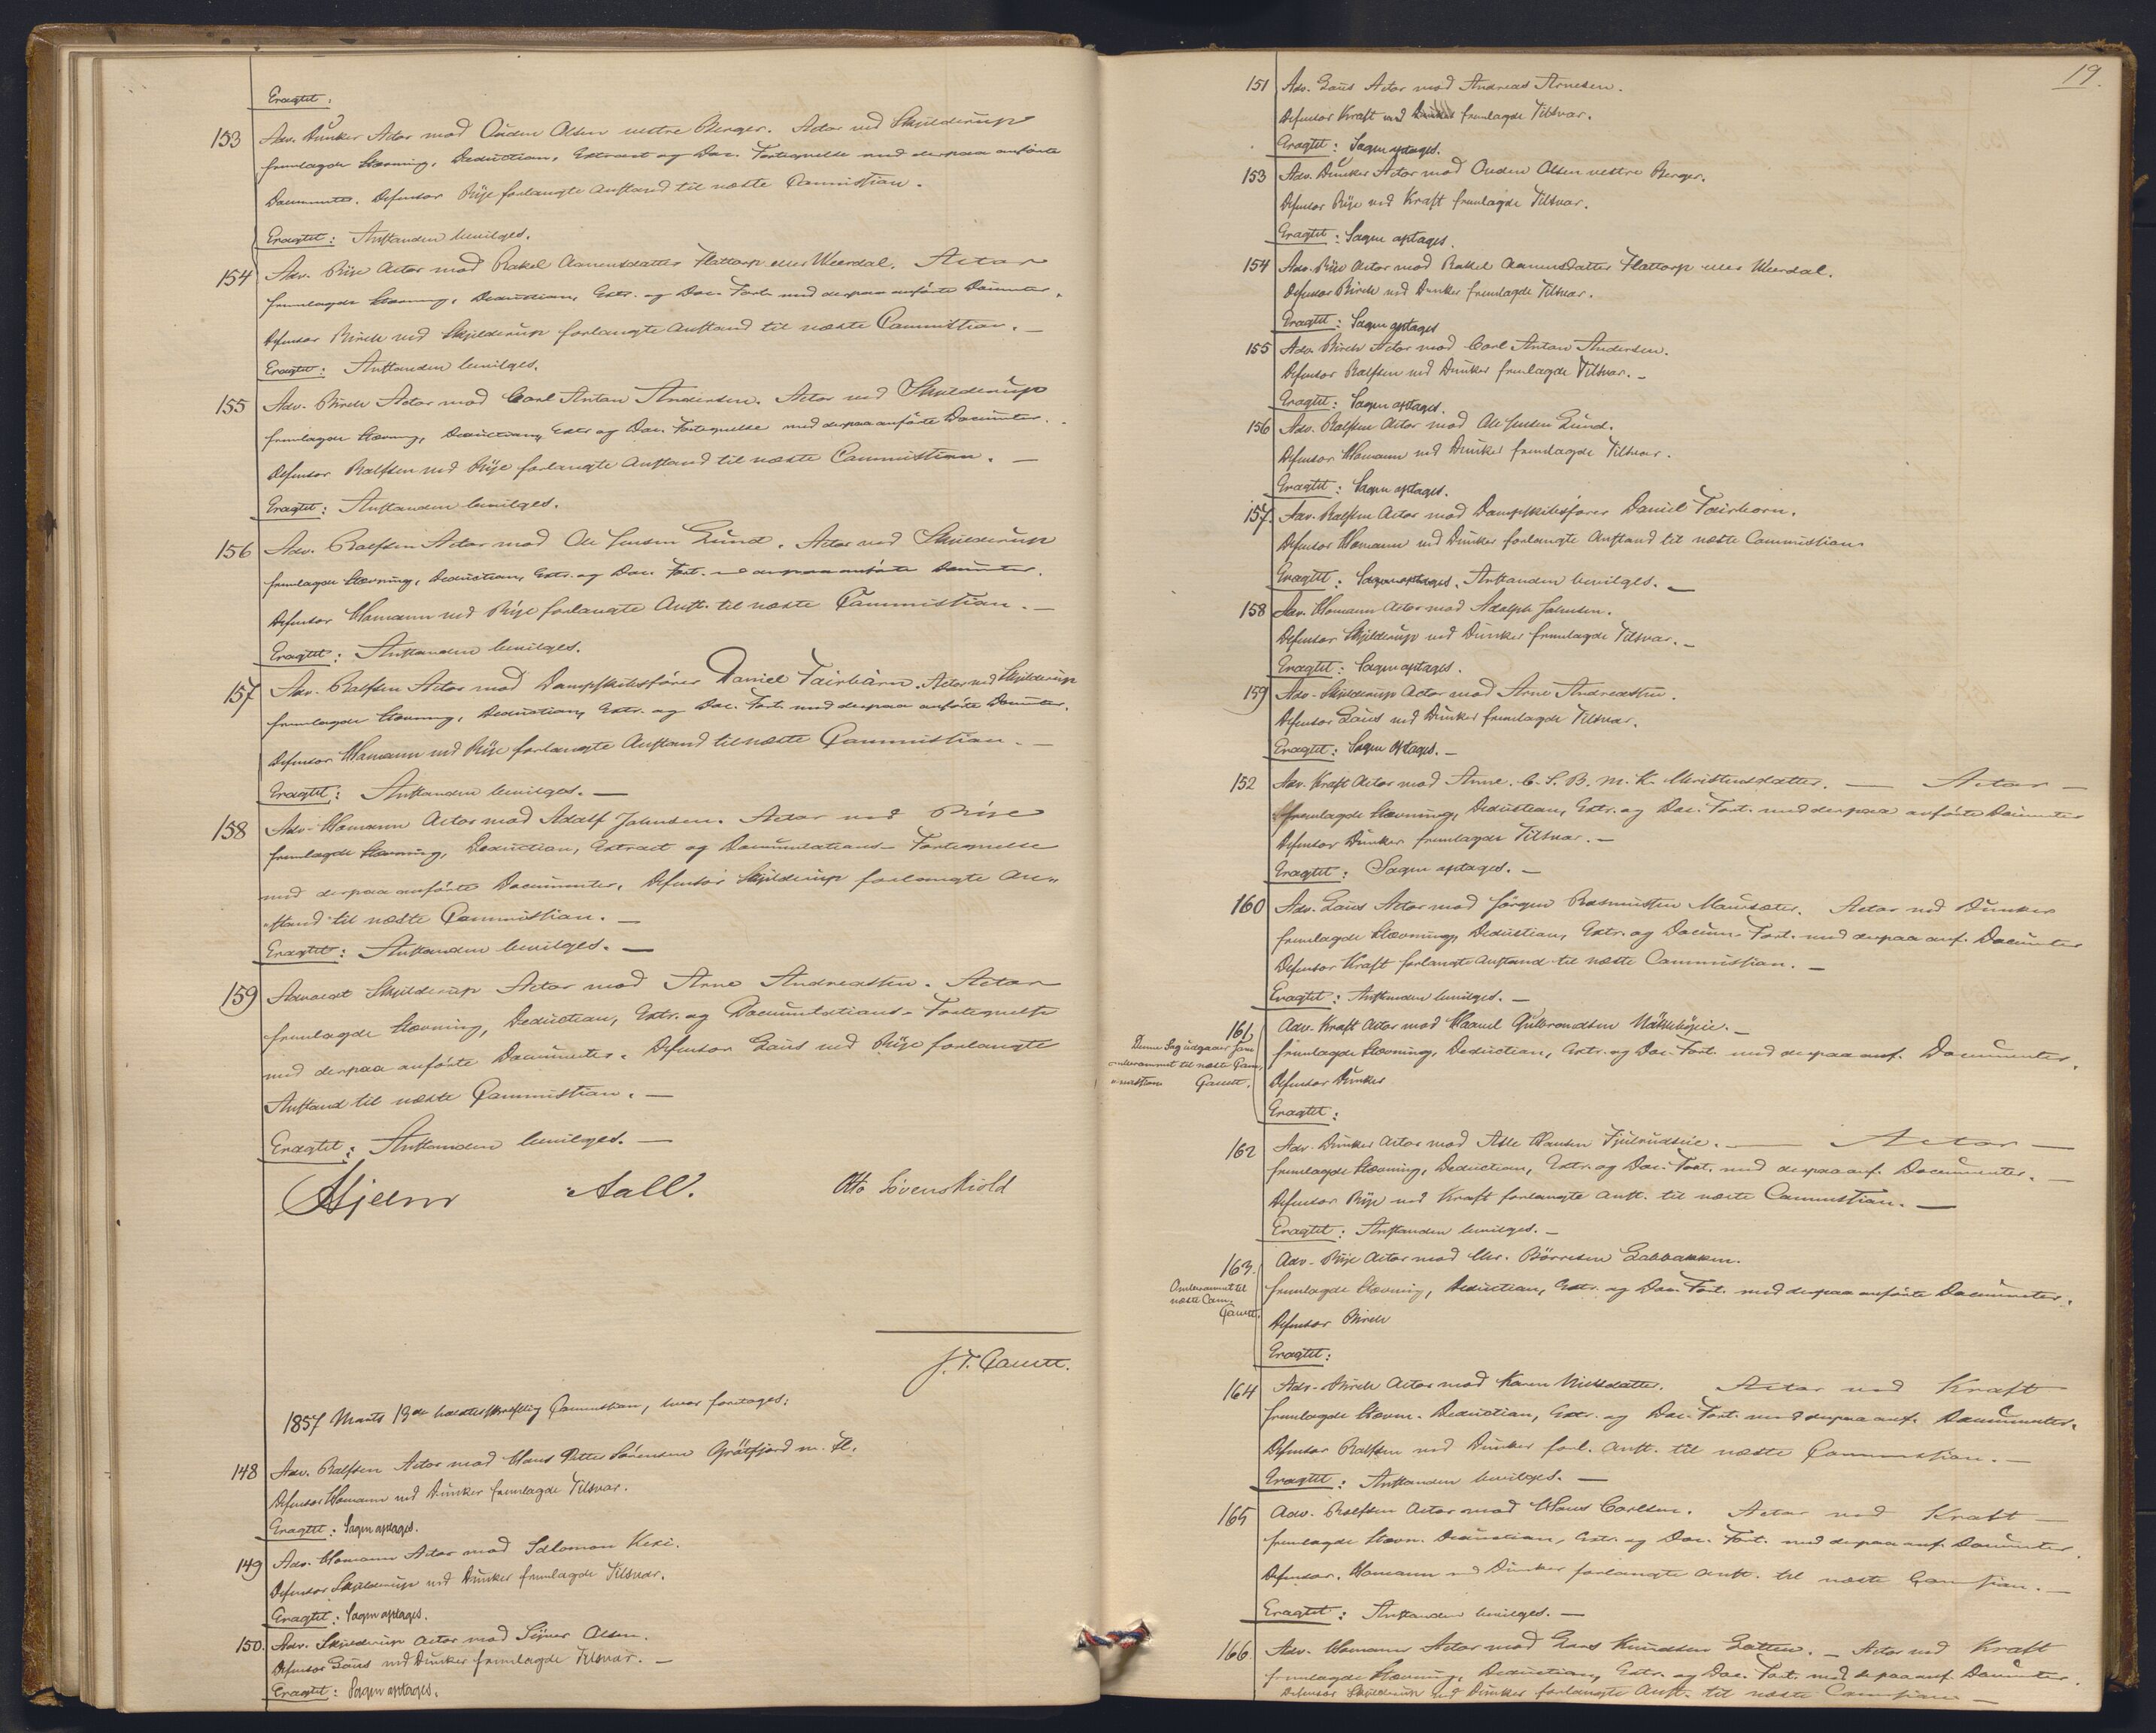 Eragtet:
153 Adv. Dunker Actor mod Auden Olsen vestre Berger. Actor ved Skjelderup
fremlagde Stævning, Deduction, Extract og Doc. Fortegnelse med derpaa anförte
Documenter. Defensor Rije forlangte Anstand til næste Commission.
Eragtet: Anstanden bevilges.
154 Adv. Rije Actor mod Rakel Aamundsdatter Flattorp eller Weerdal. Actor
fremlagde Stævning, Deduction, Extr. og Doc. Fort. med derpaa anförte Documter.
Defensor Birch ved Skjelderup forlangte Anstand til næste Commission. —
Eragtet: Anstanden bevilges.
155 Adv. Birch Actor mod Carl Anton Andersen. Actor ved Skjelderup
fremlagde Stævning, Deduction, Extr og Doc. Fortegnelse med derpaa anförte Documter.
Defensor Rolfsen ved Rije forlangte Anstand til næste Commission. —
Eragtet: Anstanden bevilges.
156 Adv. Rolfsen Actor mod Ole Jensen Lund. Actor ved Skjelderup
fremlagde Stævning, Deduction, Extr. og Doc. Fort. med derpaa anförte Documter.
Defensor Homann ved Rije forlangte Anst. til næste Commission. —
Eragtet: Anstanden bevilges.
157 Adv. Rolfsen Actor mod Dampskibsförer Daniel Fairbairn. Actor ved Skjelderup
fremlagde Stævning, Deduction, Extr. og Doc. Fort. med derpaa anförte Documter.
Defensor Homann ved Rije forlangte Anstand til næste Commission. —
Eragtet: Anstanden bevilges. —
158 Adv. Homann Actor mod Adolf Johnsen. Actor ved Rije
fremlagde Stævning, Deduction, Extract og Documentations-Fortegnelse
med derpaa anförte Documenter. Defensor Skjelderup forlangte An-
stand til næste Commission. —
Eragtet: Anstanden bevilges. —
159 Advocat Skjelderup Actor mod Arne Andreassen. Actor
fremlagde Stævning, Deduction, Extr. og Documentations-Fortegnelse
med derpaa anförte Documenter. Defensor Laus ved Rije forlangte
Anstand til næste Commission. —
Eragtet: Anstanden bevilges. —
Hjelm Aall. Otto Lövenskiold
J. T. Gauett.
1857 Marts 13de holdtes skriftlig Commission, hvor foretoges:
148 Adv. Rolfsen Actor mod Hans Petter Sörensen m. Fl.
Defensor Homann ved Dunker fremlagde Tilsvar.
Eragtet: Sagen optages.
149 Adv. Homann Actor mod Salomon Kexi.
Defensor Skjelderup ved Dunker fremlagde Tilsvar.
Eragtet: Sagen optages.
150. Adv. Skjelderup Actor mod Sijver Olsen.
Defensor Laus ved Dunker fremlagde Tilsvar. —
Eragtet: Sagen optages.
19.
151 Adv. Laus Actor mod Andreas Arnesen.
Defensor Kraft ved Dunker fremlagde Tilsvar.
Eragtet: Sagen optages.
153 Adv. Dunker Actor mod Auden Olsen vestre Berger.
Defensor Rije ved Kraft fremlagde Tilsvar.
Eragtet: Sagen optages.
154 Adv. Rije Actor mod Rakel Aamundsdatter Flattorp eller Weerdal.
Defensor Birch ved Dunker fremlagde Tilsvar.
Eragtet: Sagen optages
155 Adv. Birch Actor mod Carl Anton Andersen.
Defensor Rolfsen ved Dunker fremlagde Tilsvar. —
Eragtet: Sagen optages.
156 Adv. Rolfsen Actor mod Ole Jensen Lund.
Defensor Homann ved Dunker fremlagde Tilsvar.
Eragtet: Sagen optages.
157. Adv. Rolfsen Actor mod Dampskibsförer Daniel Fairbairn.
Defensor Homann ved Dunker forlangte Anstand til næste Commission
Eragtet: Sagen optages. Anstanden bevilges. —
158 Adv. Homann Actor mod Adolph Johnsen.
Defensor Skjelderup ved Dunker fremlagde Tilsvar. —
Eragtet: Sagen optages.
159 Adv. Skjelderup Actor mod Arne Andreassen.
Defensor Laus ved Dunker fremlagde Tilsvar.
Eragtet: Sagen optages. —
152 Adv. Kraft Actor mod Anne C. S. B. M. K. Christensdatter. — Actor —
fremlagde Stævning, Deduction, Extr. og Doc. Fort. med derpaa anförte Documter
Defensor Dunker fremlagde Tilsvar. —
Eragtet: Sagen optages. —
160 Adv. Laus Actor mod Jörgen Rasmussen Mausæter. Actor ved Dunker
fremlagde Stævning, Deduction, Extr. og Docum. Fort. med derpaa anf. Documter
Defensor Kraft forlangte Anstand til næste Commission. —
Eragtet: Anstanden bevilges. —
161. Adv. Kraft Actor mod Haavel Gulbrandsen. —
Denne Sag udgaaer som
omberammet til næste Com-
mission Gauett.
fremlagde Stævning, Deduction, Extr. og Doc. Fort. med derpaa anf. Documenter.
Defensor Dunker
Eragtet:
162 Adv. Dunker Actor mod Atle Hansen Fjeldrudseie. — Actor —
fremlagde Stævning, Deduction, Extr. og Doc. Fort. med derpaa anf. Documenter. —
Defensor Rije ved Kraft forlangte Anst. til næste Commission. —
Eragtet: Anstanden bevilges. —
163. Adv. Rije Actor mod Chr. Börresen Labbakken.
Omberammet til
næste Com.
Gauett.
fremlagde Stævning, Deduction, Extr. og Doc. Fort. med derpaa anförte Documenter.
Defensor Birch
Eragtet:
164 Adv. Birch Actor mod Karen Nielsdatter. Actor ved Kraft
fremlagde Stævn. Deduction, Extr. og Doc. Fort. med derpaa anf. Documenter.
Defensor Rolfsen ved Dunker forl. Anst. til næste Commission. —
Eragtet: Anstanden bevilges. —
165 Adv. Rolfsen Actor mod Hans Carlsen. Actor ved Kraft —
fremlagde Stævn. Deduction, Extr. og Doc. Fort. med derpaa anf. Documter.
Defensor. Homann ved Dunker forlangte Anst. til næste Comission. —
Eragtet: Anstanden bevilges. —
166 Adv. Homann Actor mod Lars Knudsen. — Actor ved Kraft
fremlagde Stævning, Deduction, Extr. og Doc. Fort. med derpaa anf. Documter.
Defensor Skjelderup ved Dunker forlangte Anst. til næste Comission —